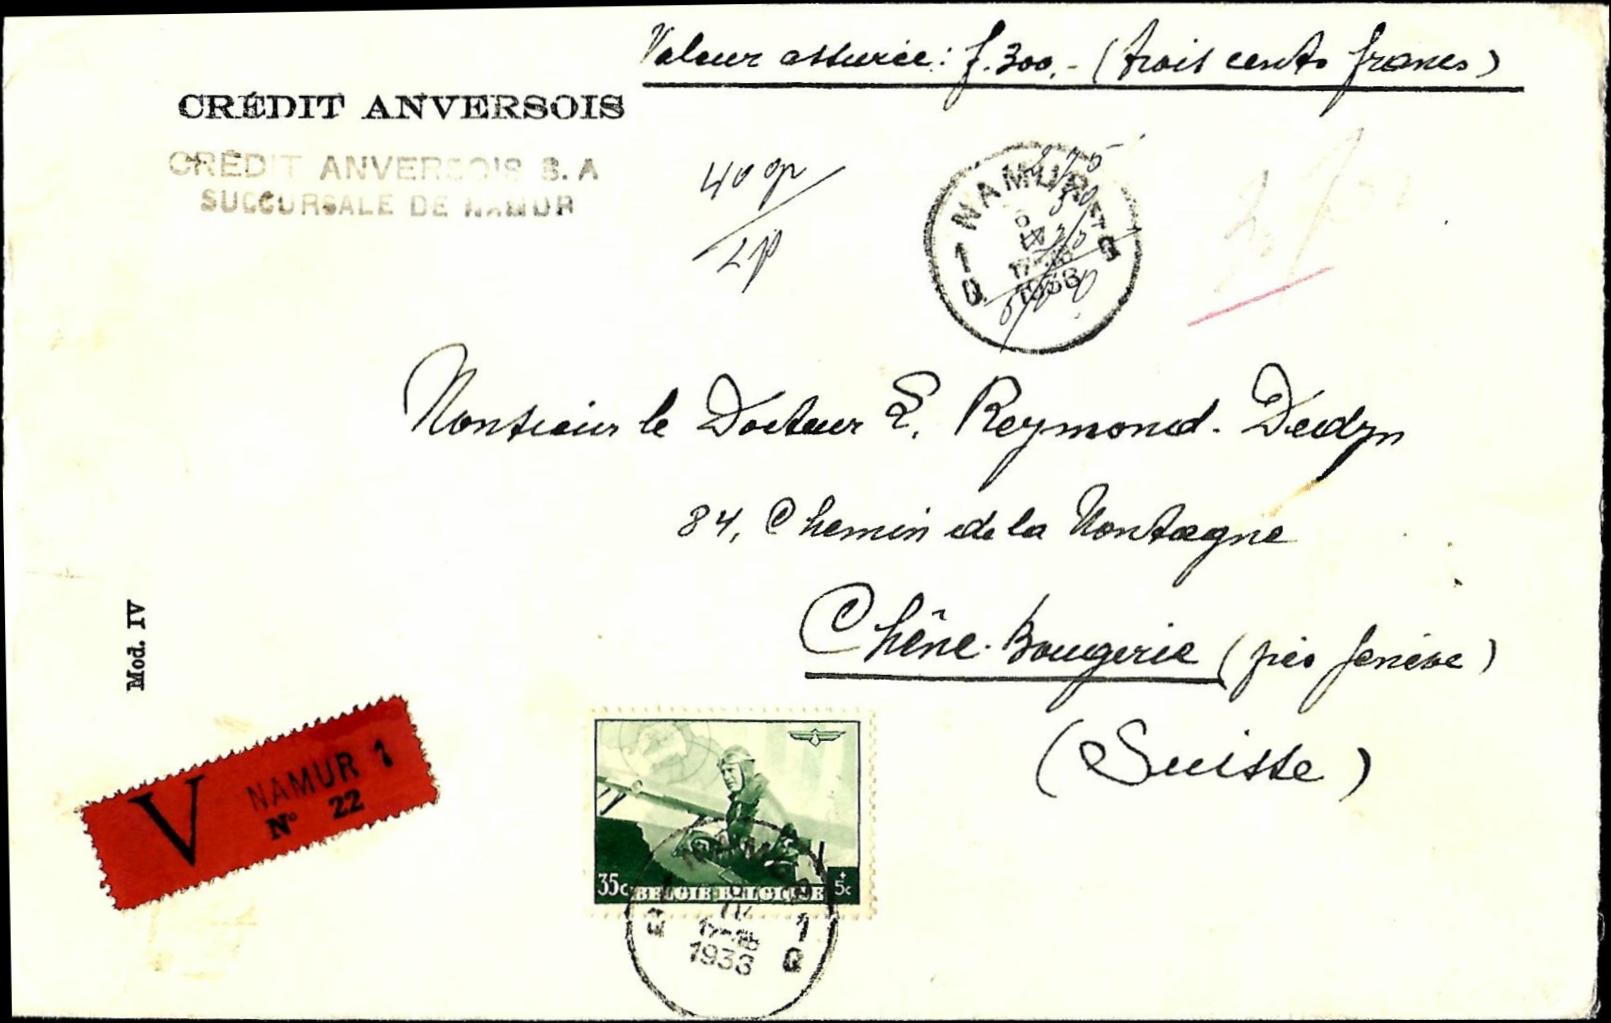 Valeur assurée : f. 300.- (trois cents francs)
CRÉDIT ANVERSOIS
CRÉDIT ANVERSOIS S. A
SUCCURSALE DE NAMUR
40 gr
2 p
NAMUR 1
1 Q
17-18
1938
Monsieur le Docteur E. Reymond-
84, Chemin de la Montagne
Chêne-Bougerie (près Genève)
(Suisse)
Mod. IV
V NAMUR 1
N° 22
35c BELGIE-BELGIQUE +5c
1
IV
17-18
1938 Q